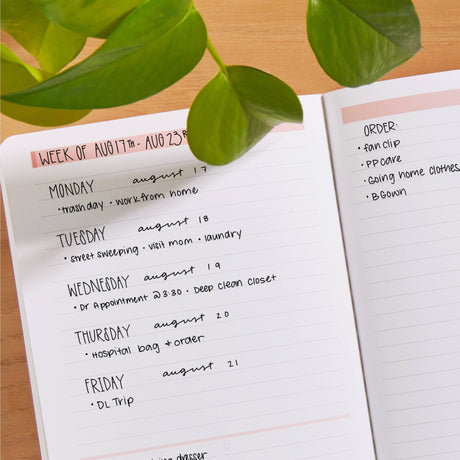 WEEK OF AUG 17TH - AUG 23R
MONDAY august 17
• trash day • work from home
TUESDAY august 18
• street sweeping • visit mom • laundry
WEDNESDAY august 19
• Dr Appointment @ 3:30 • Deep clean closet
THURSDAY august 20
• Hospital bag + order
FRIDAY august 21
• DL Trip
dresser
ORDER:
• fan clip
• PP care
• Going home clothes
• B Gown